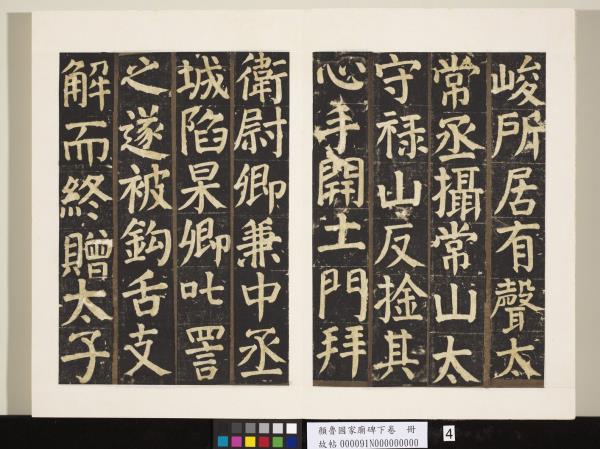 峻所居有聲太
常丞攝常山太
守祿山反捦其
心手開土門拜
衛尉卿兼中丞
城陷杲卿叱詈
之遂被鉤舌支
解而終贈太子
顏魯國家廟碑下卷 冊
故帖 000091N000000000
4